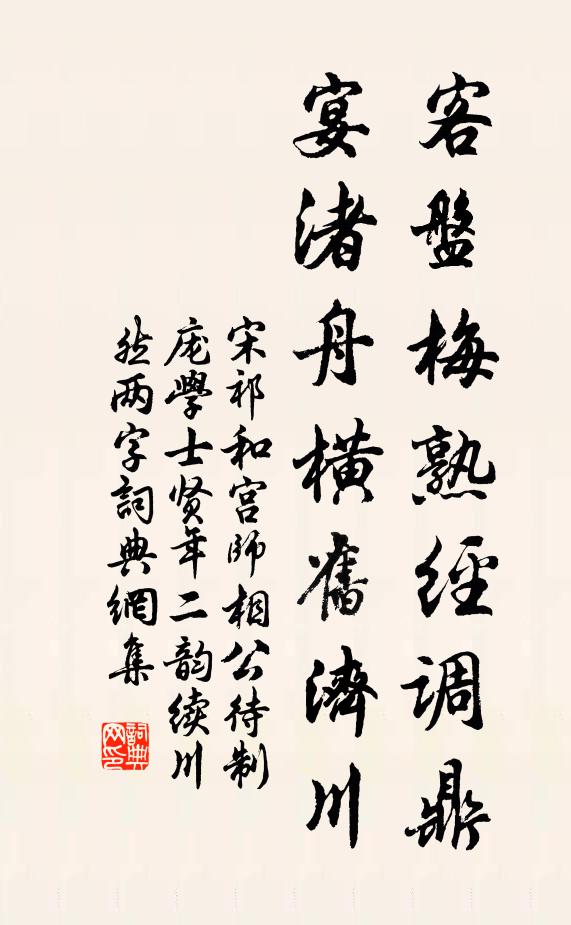 客盤梅熟經调鼎
宴渚舟橫舊濟川
宋祁和宫師相公待制
庞學士贤年二韵续川
然两字詞典網集
詞典网印